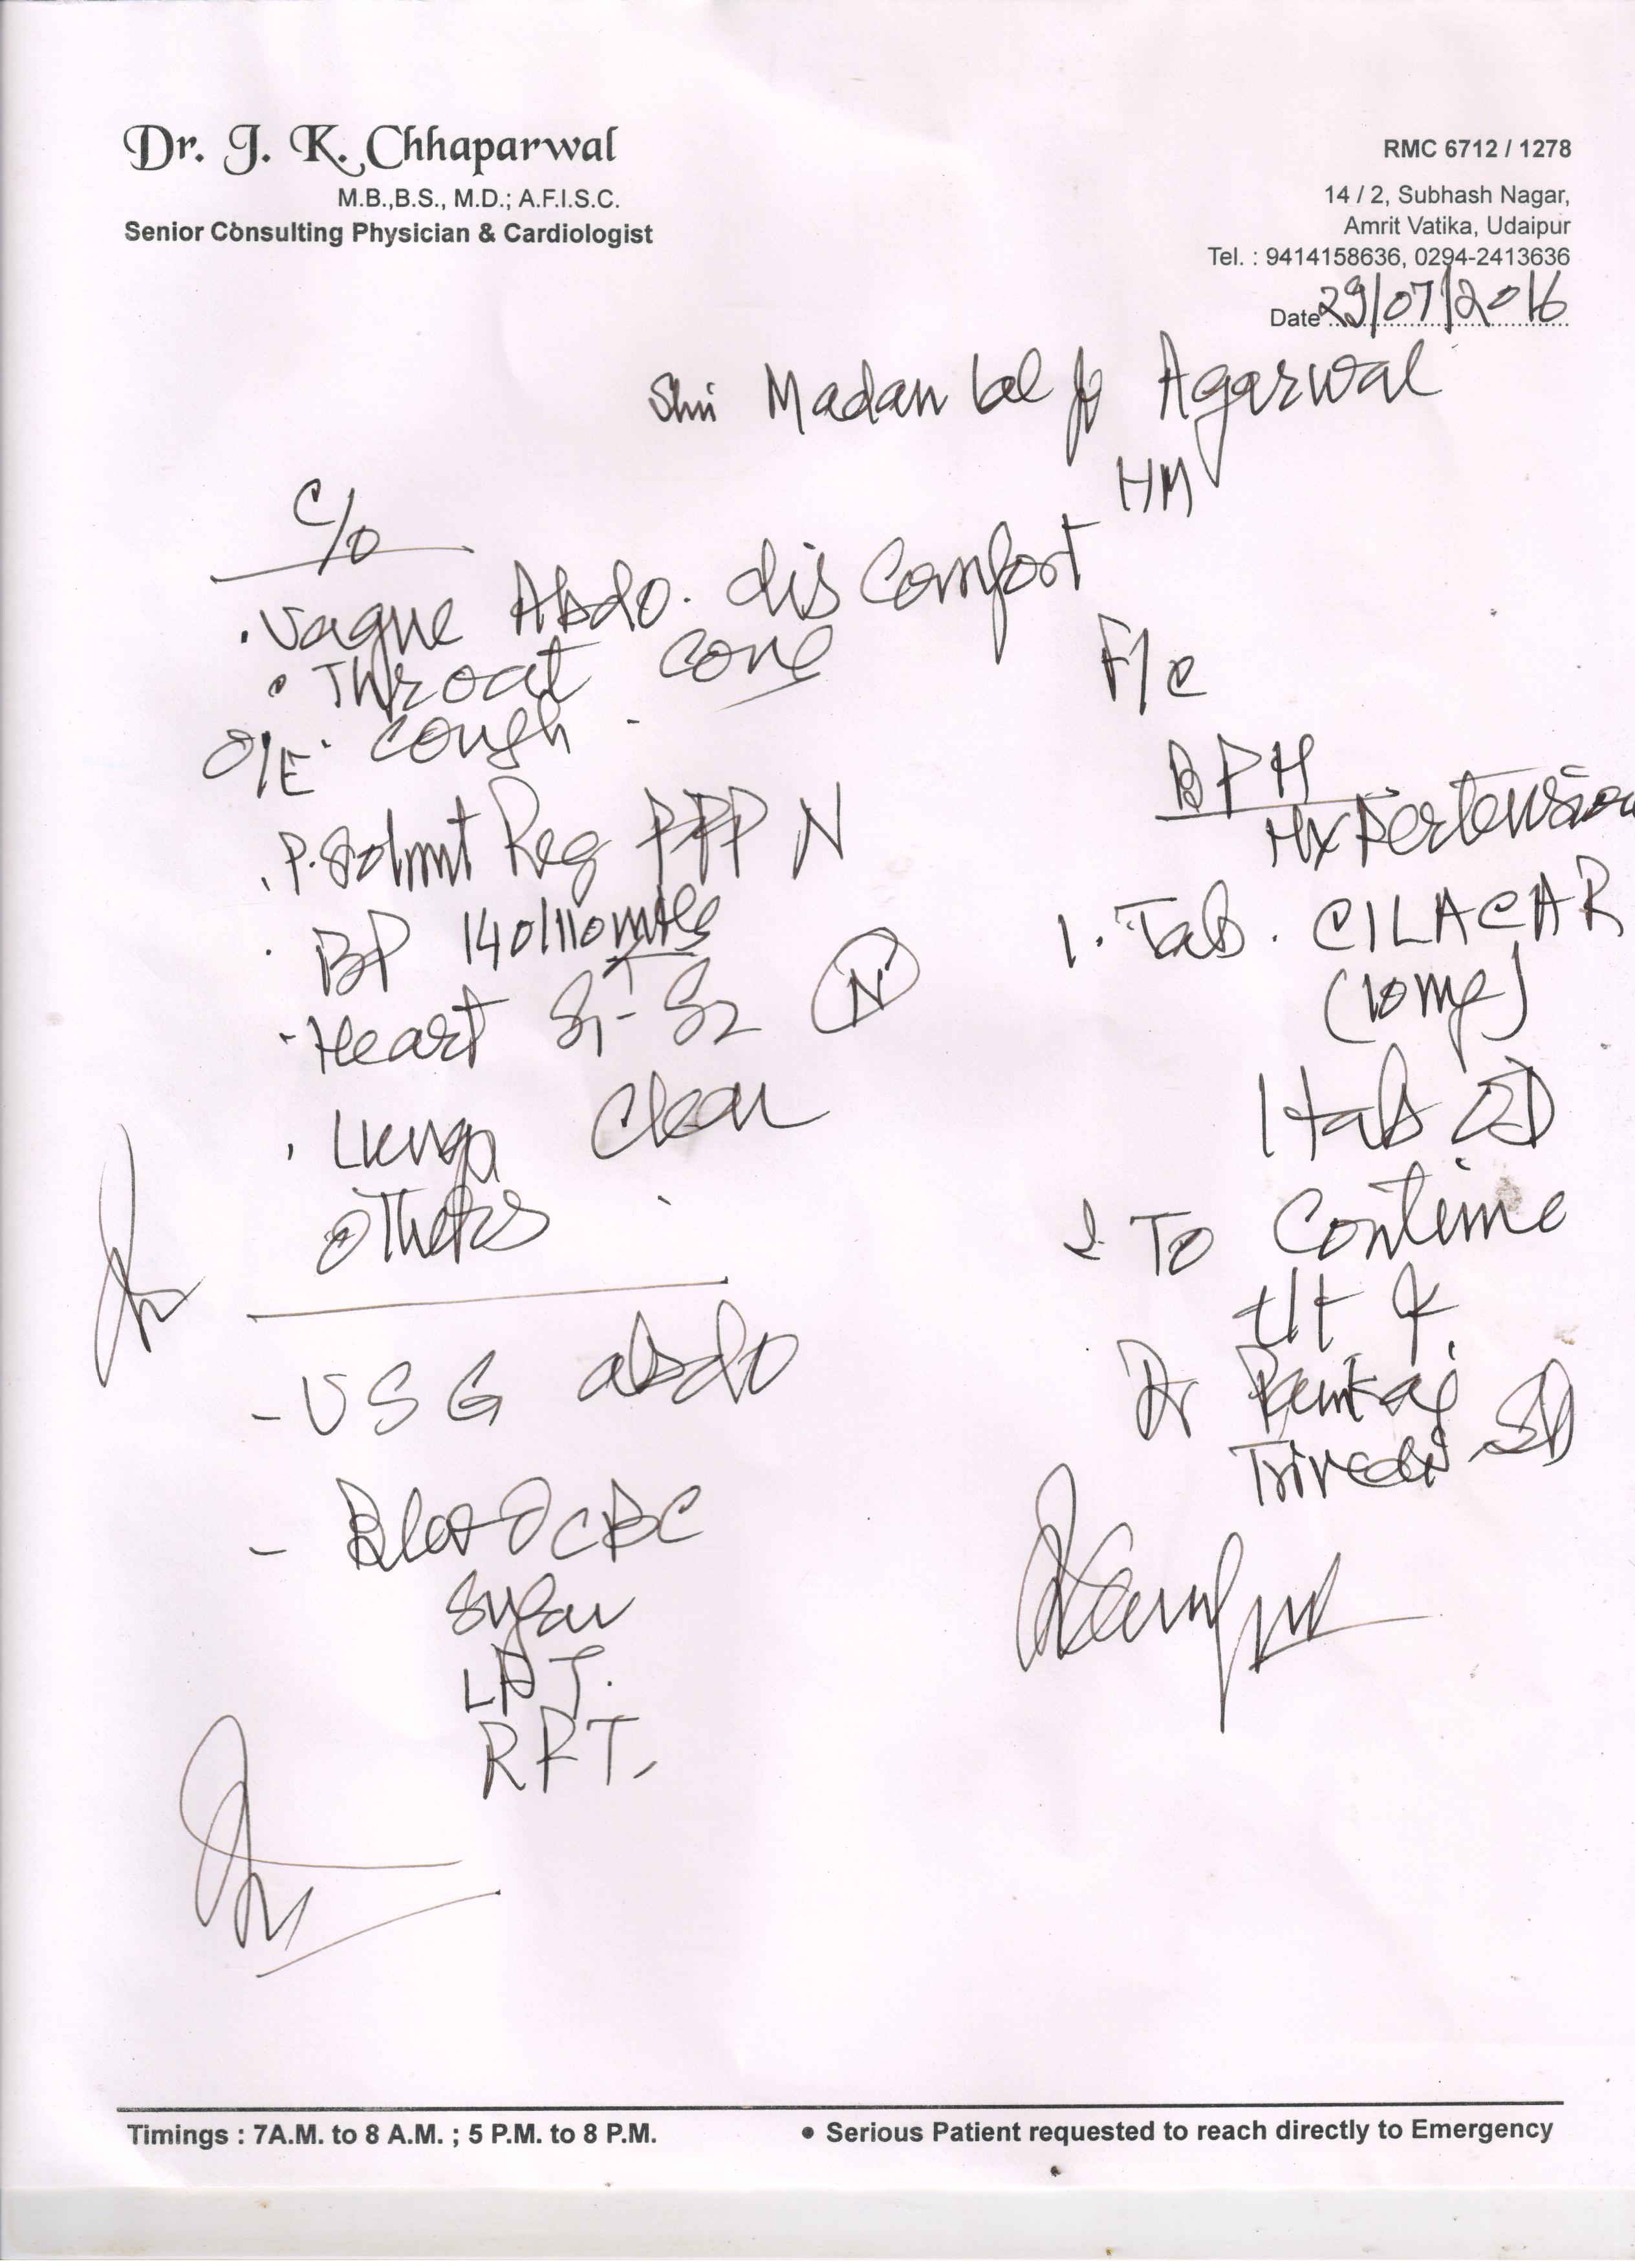 Dr. J. K. Chhaparwal
M.B.,B.S., M.D.; A.F.I.S.C.
Senior Consulting Physician & Cardiologist
RMC 6712 / 1278
14 / 2, Subhash Nagar,
Amrit Vatika, Udaipur
Tel. : 9414158636, 0294-2413636
Date 29/07/2016
Shri Madan Lal Ji Agarwal
HM
C/o
. Vague Abdo. dis comfort
. Throat
cough
O/E
Reg PPP N
. BP 140/110 mmHg
- Heart S1 - S2 N
. Lungs Clear
Others
- USG abdo
- Blood CBC
Sugar
LFT.
RFT.
F/c
BPH
Hypertension
1. Tab. CILACAR
(10mg)
1 tab OD
2. To Continue
t/t
Dr Pankaj
Trivedi
Timings : 7A.M. to 8 A.M. ; 5 P.M. to 8 P.M.
• Serious Patient requested to reach directly to Emergency